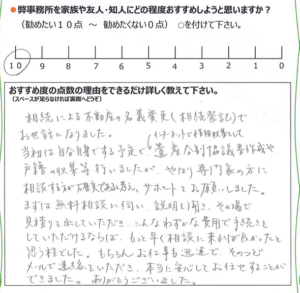 ●弊事務所を家族や友人・知人にどの程度おすすめしようと思いますか？
（勧めたい１０点 ～ 勧めたくない０点） ○を付けて下さい。
10 9 8 7 6 5 4 3 2 1 0
おすすめ度の点数の理由をできるだけ詳しく教えて下さい。
（スペースが足らなければ裏面へどうぞ）
相続による不動産の名義変更（相続登記）で
お世話になりました。
インターネットで情報収集をして
当初は自分自身でする予定で遺産分割協議書作成や
戸籍の収集等行いましたが、やはり専門家の方に
相談する方が確実であると思い、サポートをお願いしました。
まずは無料相談に伺い、説明を聞き、その場で
見積りを出していただき、こんなわずかな費用で手続きを
していただけるならば、もっと早く相談に来れば良かったと
思う程でした。もちろんお仕事も迅速で、そのつど
メールで連絡をいただき、本当に安心してお任せすることが
できました。ありがとうございました。